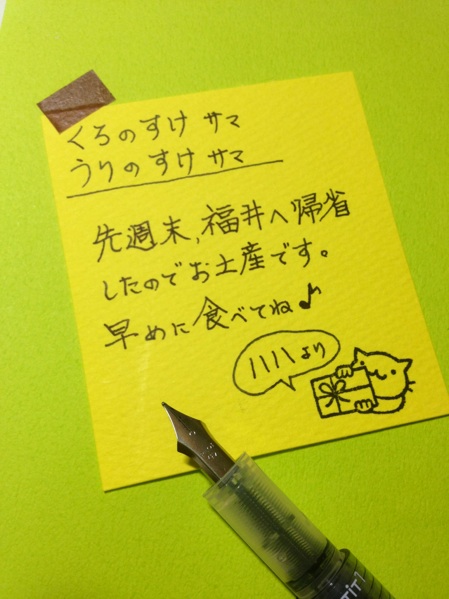 くろのすけ サマ
うりのすけ サマ
先週末、福井へ帰省
したのでお土産です。
早めに食べてね♪
ハハより